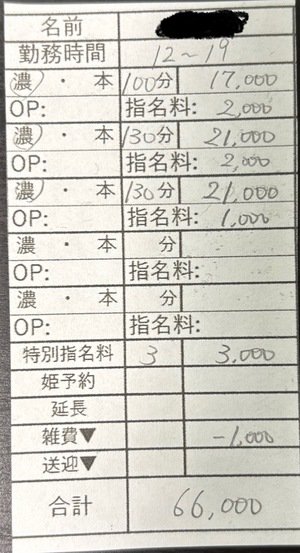 名前
勤務時間 12~19
濃・本 100分 17,000
OP: 指名料: 2,000
濃・本 130分 21,000
OP: 指名料: 2,000
濃・本 130分 21,000
OP: 指名料: 1,000
濃・本 分
OP: 指名料:
濃・本 分
OP: 指名料:
特別指名料 3 3,000
姫予約
延長
雑費▼ -1,000
送迎▼
合計 66,000